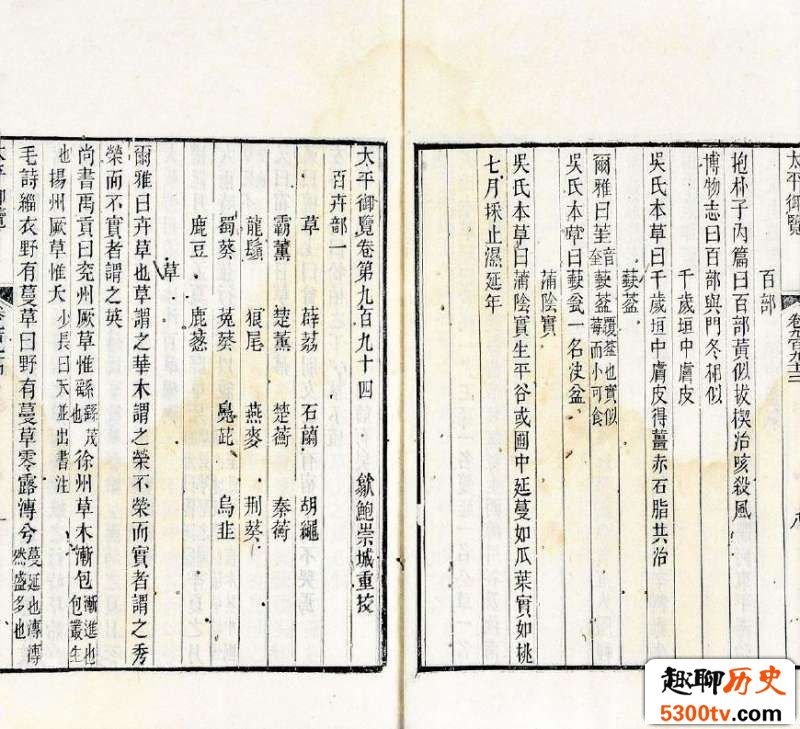 太平御覽
百部
抱朴子內篇曰百部黃似拔楔治咳殺風
博物志曰百部與門冬相似
千歲垣中膚皮
吳氏本草曰千歲垣中膚皮得薑赤石脂共治
蒛葐
爾雅曰茥音奎蒛葐覆葐也實似莓而小可食
吳氏本草曰蒛盆一名決盆
蒲陰實
吳氏本草曰蒲陰實生平谷或圃中延蔓如瓜葉實如桃
七月採止濕延年
太平御覽卷第九百九十四 歙鮑崇城重校
百卉部一
草 薜荔 石蘭 胡繩
霸薰 楚薰 楚蘅 秦蘅
龍鬚 狼尾 燕麥 荆葵
蜀葵 菟葵 鳧茈 烏韭
鹿豆 鹿蔥
草
爾雅曰卉草也草謂之華木謂之榮不榮而實者謂之秀
榮而不實者謂之英
尚書禹貢曰兗州厥草惟繇繇茂也徐州草木漸包漸進也包叢生
也揚州厥草惟夭少長曰夭並出書注
毛詩緇衣野有蔓草曰野有蔓草零露漙兮蔓延也漙漙然盛多也
太平御覽
趣聊历史
5300tv.com